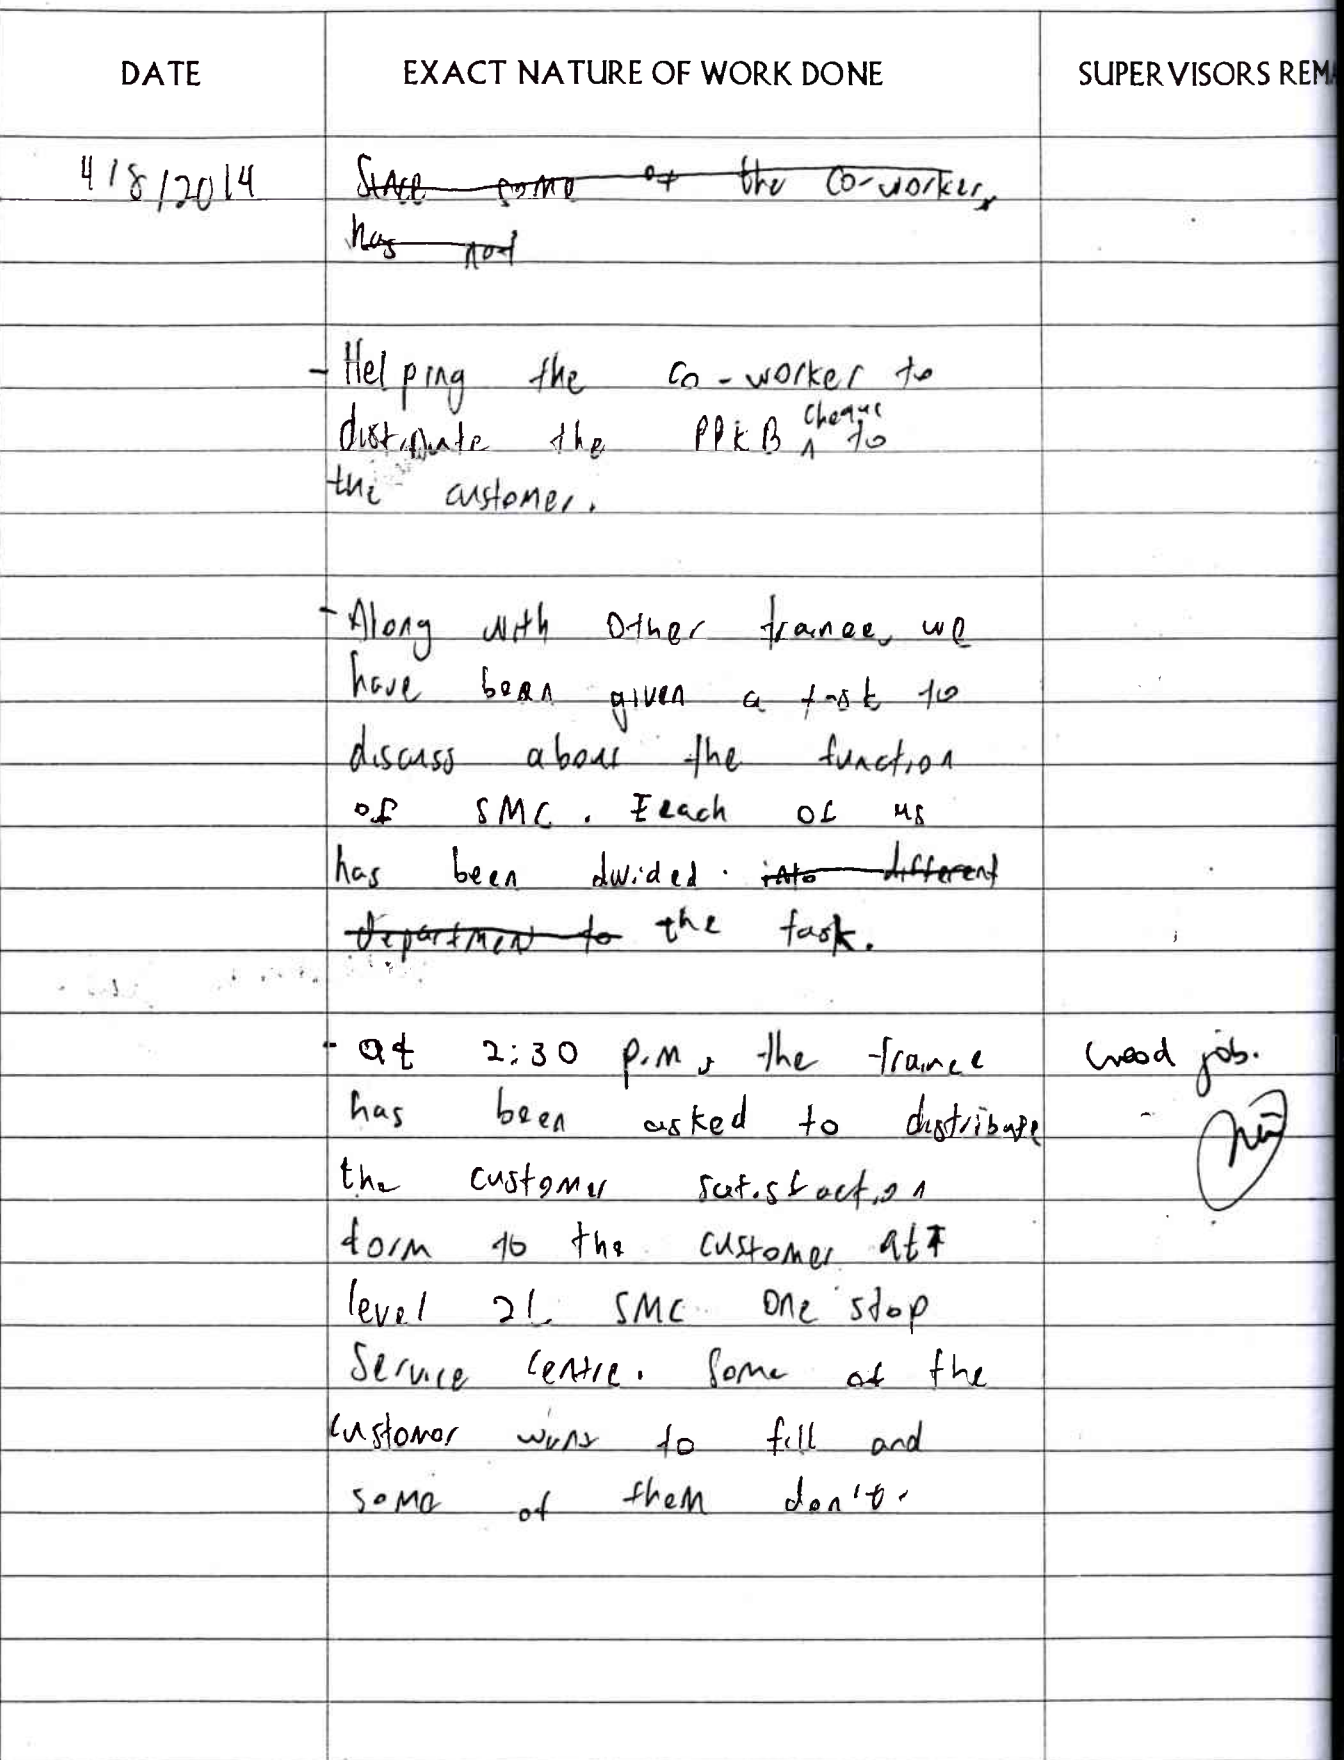 DATE EXACT NATURE OF WORK DONE SUPERVISORS REMA
4/8/2014 Since some of the co-worker,
has not
- Helping the co-worker to
distribute the PPKB ^ cheque to
the customer.
- Along with other trainee, we
have been given a task to
discuss about the function
of SMC. Each of us
has been divided. into different
department to the task.
- at 2:30 p.m, the trainee Good job.
has been asked to distribute
the customer satisfaction
form to the customer at
level 21 SMC one stop
Service Centre. Some of the
customer wants to fill and
some of them don't.